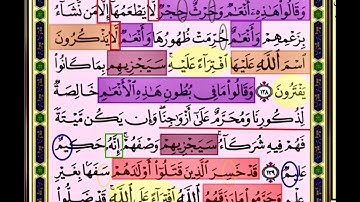 وَقَالُوا۟ هَـٰذِهِۦٓ أَنْعَـٰمٌ وَحَرْثٌ حِجْرٌ لَّا يَطْعَمُهَآ إِلَّا مَن نَّشَآءُ
بِزَعْمِهِمْ وَأَنْعَـٰمٌ حُرِّمَتْ ظُهُورُهَا وَأَنْعَـٰمٌ لَّا يَذْكُرُونَ
ٱسْمَ ٱللَّهِ عَلَيْهَا ٱفْتِرَآءً عَلَيْهِ ۚ سَيَجْزِيهِم بِمَا كَانُوا۟
يَفْتَرُونَ ١٣٨ وَقَالُوا۟ مَا فِى بُطُونِ هَـٰذِهِ ٱلْأَنْعَـٰمِ خَالِصَةٌ
لِّذُكُورِنَا وَمُحَرَّمٌ عَلَىٰٓ أَزْوَٰجِنَا ۖ وَإِن يَكُن مَّيْتَةً
فَهُمْ فِيهِ شُرَكَآءُ ۚ سَيَجْزِيهِمْ وَصْفَهُمْ ۚ إِنَّهُۥ حَكِيمٌ
عَلِيمٌ ١٣٩ قَدْ خَسِرَ ٱلَّذِينَ قَتَلُوٓا۟ أَوْلَـٰدَهُمْ سَفَهًۢا بِغَيْرِ
عِلْمٍ وَحَرَّمُوا۟ مَا رَزَقَهُمُ ٱللَّهُ ٱفْتِرَآءً عَلَى ٱللَّهِ ۚ قَدْ ضَلُّوا۟